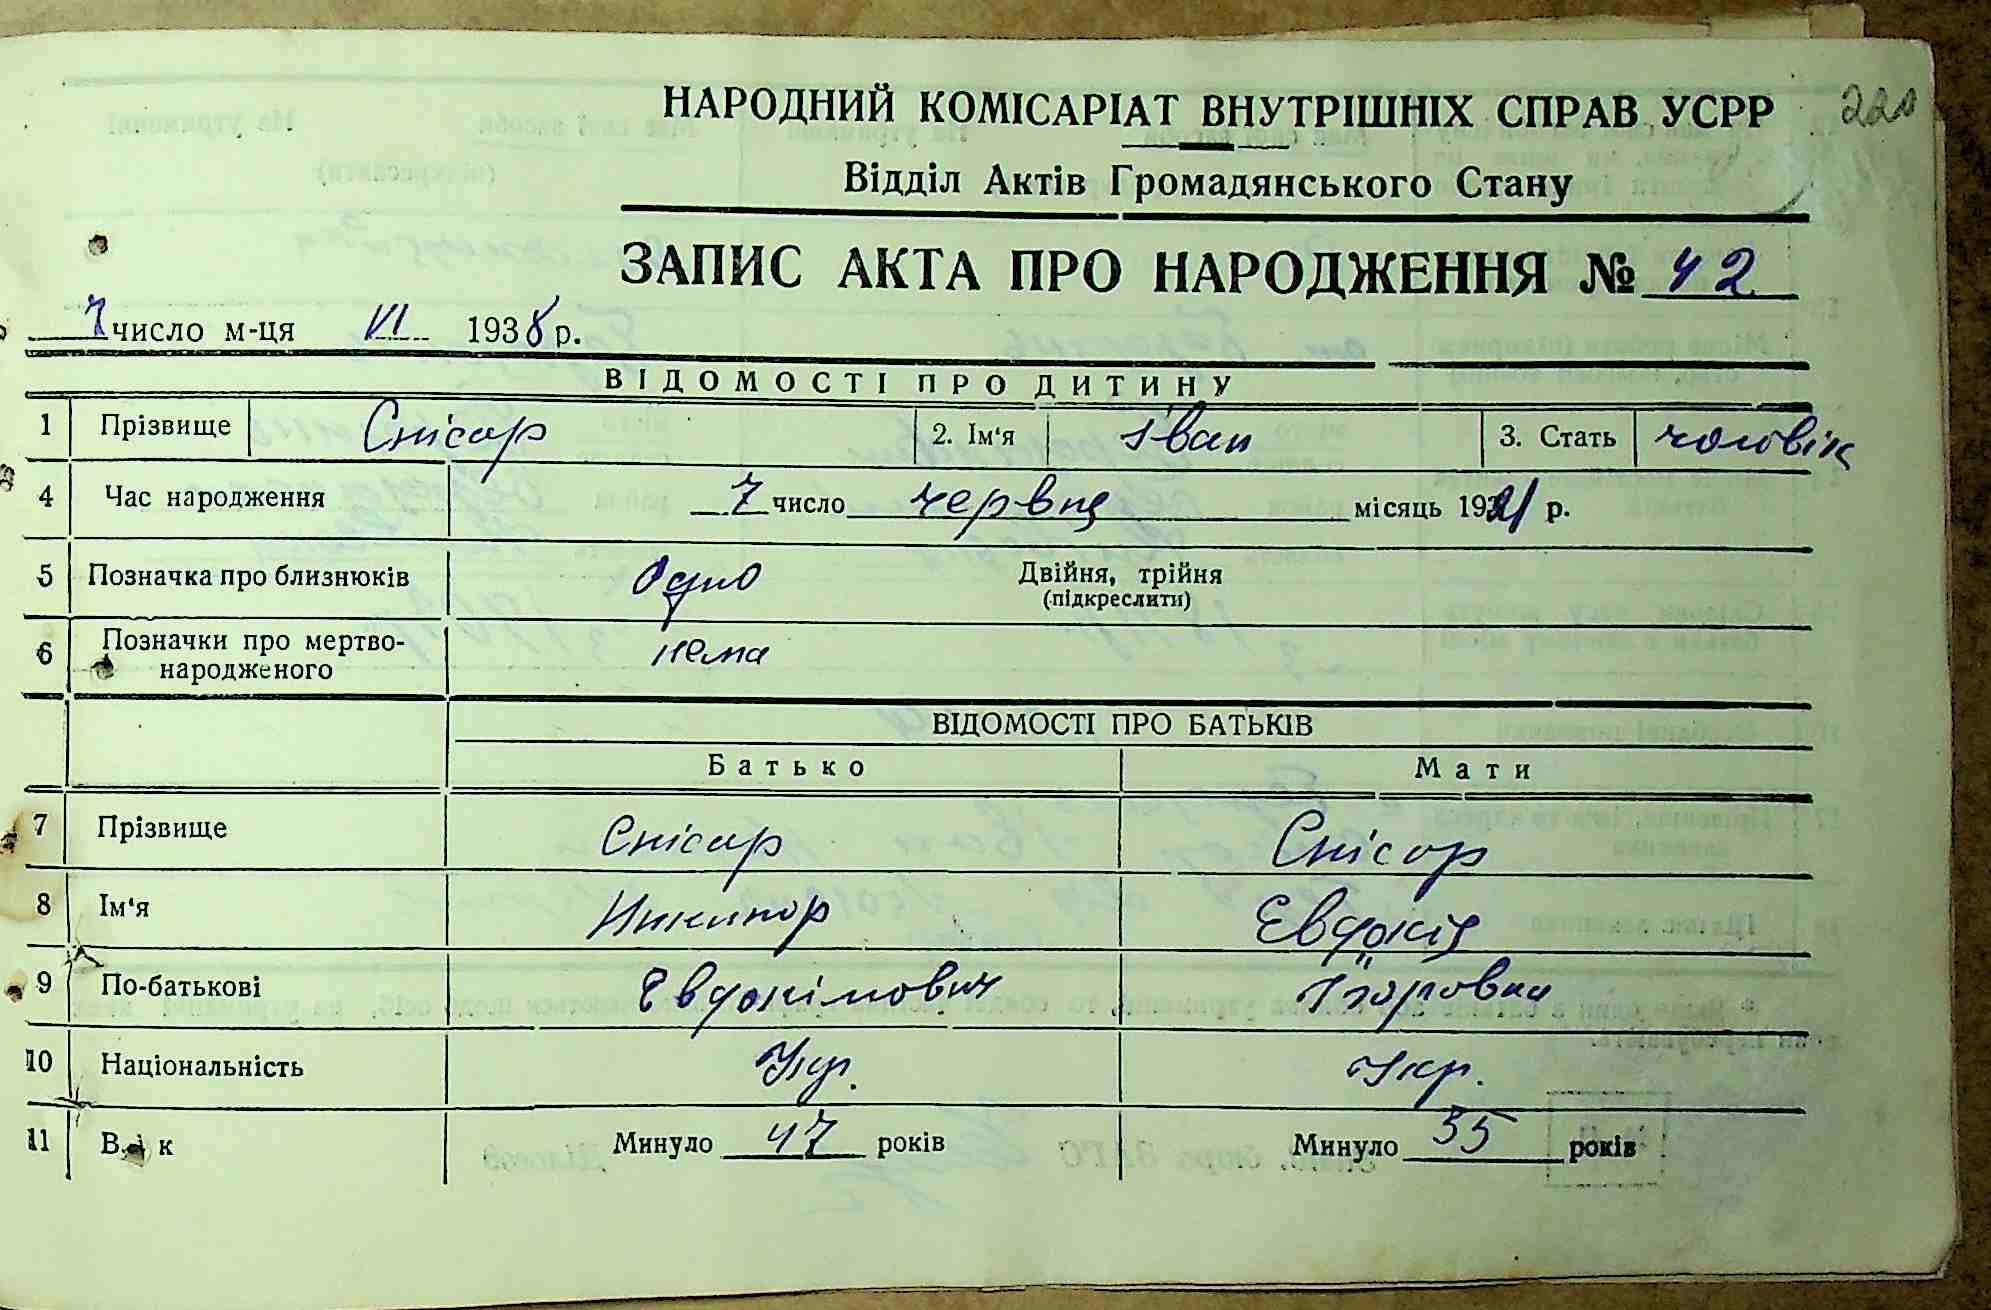 НАРОДНИЙ КОМІСАРІАТ ВНУТРІШНІХ СПРАВ УСРР 220
Відділ Актів Громадянського Стану
ЗАПИС АКТА ПРО НАРОДЖЕННЯ № 42
7 число м-ця VI 1938 р.
ВІДОМОСТІ ПРО ДИТИНУ
1 Прізвище Снісар 2. Ім'я Іван 3. Стать чоловік
4 Час народження 7 число червня місяць 1921 р.
5 Позначка про близнюків Одно Двійня, трійня
(підкреслити)
6 Позначки про мертво-
народженого нема
ВІДОМОСТІ ПРО БАТЬКІВ
Батько Мати
7 Прізвище Снісар Снісар
8 Ім'я Никипор Евдокія
9 По-батькові Евдокімович Ігоровна
10 Національність Укр. Укр.
11 Вік Минуло 47 років Минуло 35 років